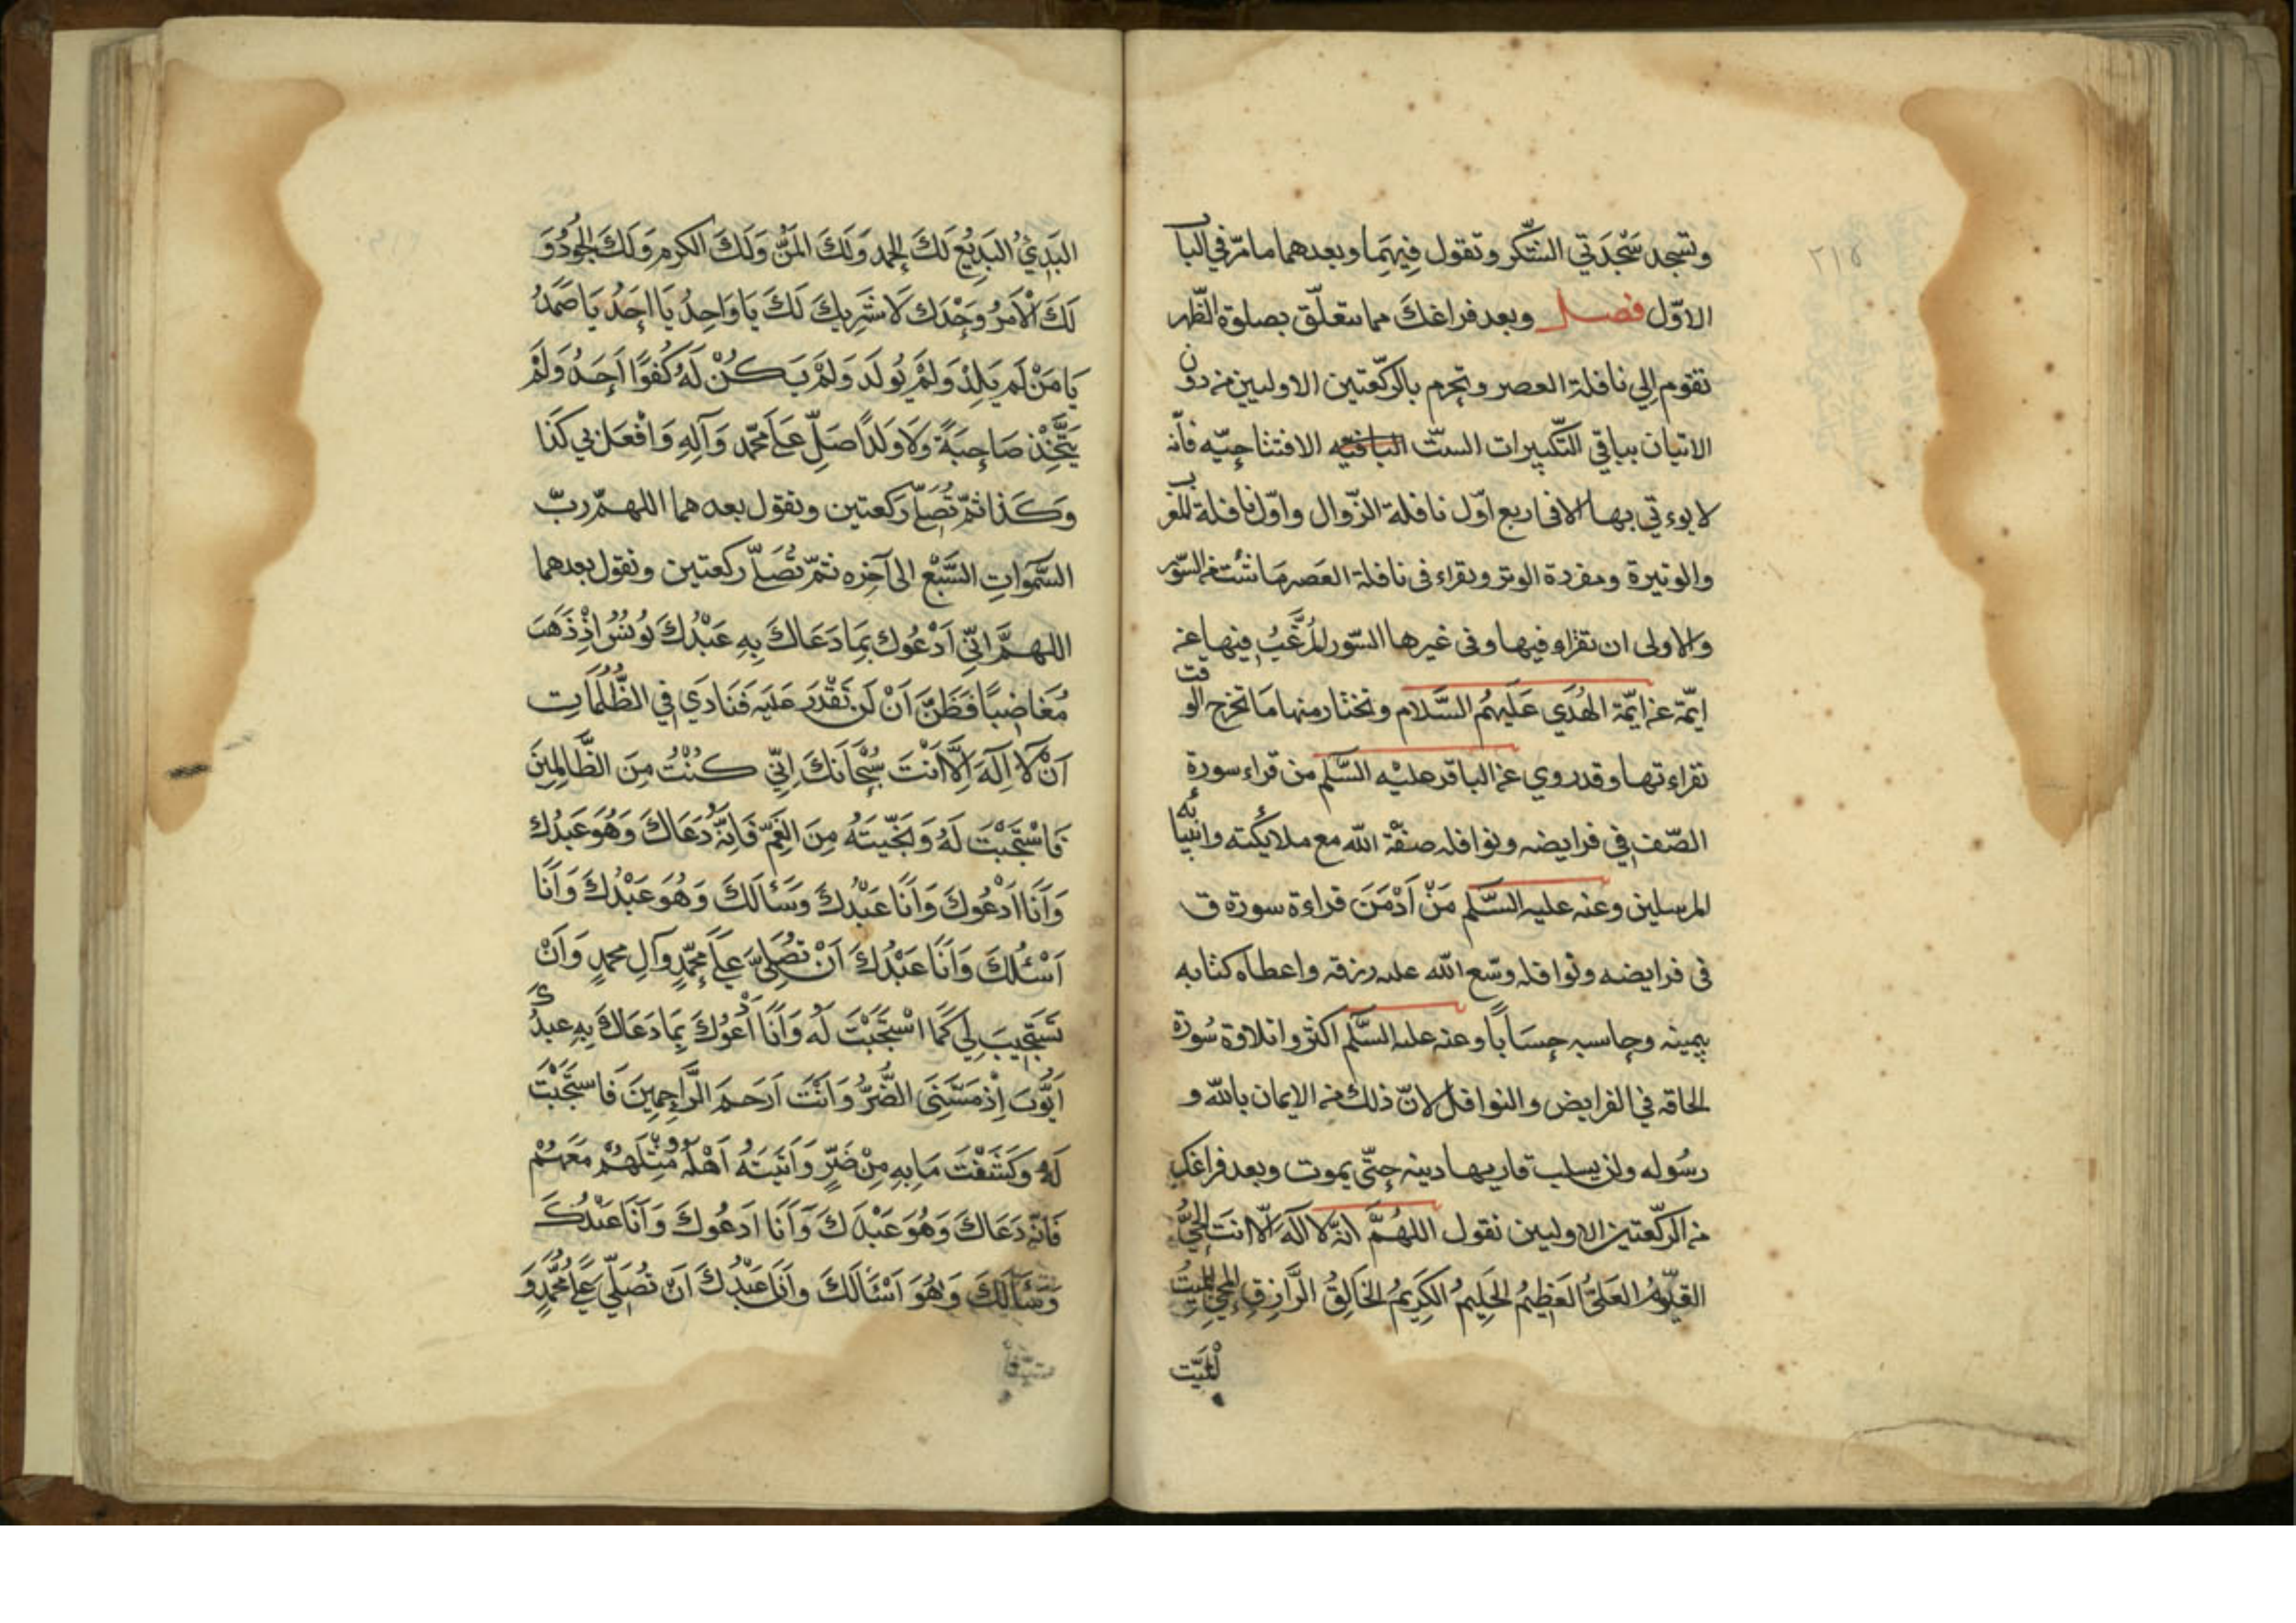 وتسجد سَجْدَتي الشّكر وتقول فِيهَما وبعدهما ما مرّ في البا
ب
الاوّل فصل وبعد فراغكَ مما يتعلّق بصلوة الظّهر
تقوم اِلي نافلة العصر وتحرم بالركّعتين الاوليين من دون
الاتيان بباقي التّكبيرات الستّ الباقيه الافتتاحيّه فانّه
لا يوءتي بها الا في اربع اوّل نافلة الزّوال واوّل نافلة المغر
ب
والوتيرة ومفردة الوتر ويقراء في نافلة العَصر مَا شئت من السّور
والاولى ان تقراء فيها وفى غيرها السّور المُرغَّبُ فيها عن
ايمّة عن ايمّة الهُدَي عَلَيهُم السَّلام وتختار منها مَا تخرج الو
قت
تقراءتها وقد روي عن الباقر عليْه السَّلم من قراء سورة
الصّف في فرايضه ونوافله صفّة الله مع ملايكته وانبيا
ئه
المرسلين وعنه عليه السَّلم مَنْ اَدْمَنَ قراءة سورة ق
فى فرايضه ونوافله وسّع الله عليه رزقه واعطاه كتابه
بيمينه وحاسبه حِسَابًا وعنه عليه السَّلم اكثروا تلاوة سُورة
الحاقه في الفرايض والنوافل لانّ ذلك من الايمان بالله و
رسُوله ولن يسلب قاريها دينه حتّى يموت وبعد فراغك
من الركّعتين الاوليين تقول اللهُمَّ انّه لا آلَهَ اِلّا انتَ الحيُّ
القيّومُ العَليُّ العَظِيمُ الحَلِيمُ الكَرِيمُ الخَالِقُ الرَّازِق المحيي المميتُ
٢١٥
البَدِيُ البَدِيْعُ لَكَ الحمد وَلَكَ المَنُّ وَلَكَ الكرم وَلَكَ الجُودُ وَ
لَكَ الْاَمرُ وَحْدَك لَا شَرِيكَ لَكَ يَا وَاحِدُ يَا اَحَدُ يَا صَمَدُ
يَا مَنْ لَم يَلِدْ وَلَمْ يُولَد وَلَمْ يَكُنْ لَهُ كُفوًا اَحَدُ وَلَمْ
يَتَّخِذْ صَاحِبَةً وَلَا وَلَدًا صَلِّ عَلَي مَحمّد وَآلِهِ وَافْعَل بي كَذَا
وَكَذَا ثمّ تُصَلّي ركعتين وتقول بعدهما اللهمّ ربّ
السَّموَاتِ السَّبْع الى آخِره ثمّ تُصَلّي ركعتين وتقول بعدهما
اللهمَّ اِنّي اَدْعُوك بِمَا دَعَاكَ بِهِ عَبْدُكَ يُونُسُ اِذْ ذَهَبَ
مُغَاضِبًا فَظَنَّ اَنْ لَن نَقْدَرَ عَلَيه فَنَادَي فِي الظُّلُمَاتِ
اَنْ لَا اِلَهَ اِلَّا اَنْتَ سُبْحَانَكَ اِنّي كُنْتُ مِنَ الظَّالِمِينَ
فَاسْتَجَبْتَ لَهُ وَنَجَّيتَهُ مِنَ الغَمِّ فَاِنَّهُ دَعَاكَ وَهُوَ عَبدُك
وَاَنَا اَدْعُوكَ وَاَنَا عَبْدُكَ وَسَئَالَكَ وَهُوَ عَبْدُكَ وَاَنَا
اَسْئلُكَ وَاَنَا عَبْدُكَ اَنْ تُصَلِّيَ عَلَي محمّدٍ وآلِ محمدٍ وَاَنْ
تَسْتَجِيبَ لِي كَمَا اسْتَجَبْتَ لَهُ وَاَنَا اَدْعُوكَ بِمَا دَعَاكَ بِهِ عبدُ
كَ
اَيُّوبَ اِذْ مَسَّنِيَ الضُّرُّ وَاَنْتَ اَرَحَمُ الرَّاحِمِينَ فَاستَجَبْتَ
لَهُ وَكَشَفْتَ مَا بِهِ مِنْ ضُرٍّ وَآتَيتَهُ اَهْلَهُ وَمِثْلَهُمْ مَعَهُمْ
فَاِنّه دَعَاكَ وَهُوَ عَبْدَكَ وَاَنَا اَدعُوكَ وَاَنَا عَبْدُكَ
وَسَئَالَكَ وَهُوَ اَسْئَالَكَ وَاَنَا عَبْدُكَ اَنْ تُصَلِّيَ عَلَي مُحَمَّدٍ وَ